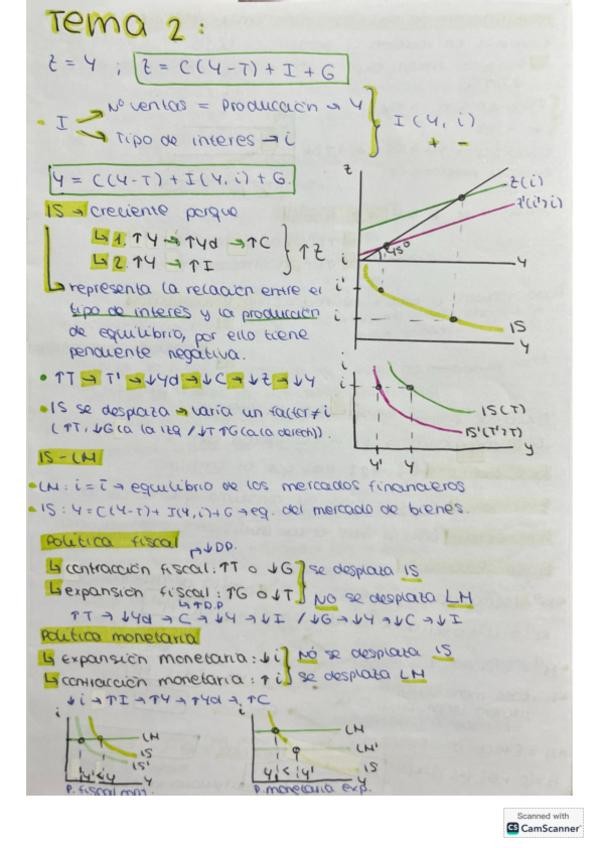 Tema 2:
Z = Y ; Z = C(Y-T) + I + G
• I → Nº ventas = Producción → Y
→ Tipo de interes → i
I (Y, i)
+ -
Y = C(Y-T) + I(Y, i) + G.
IS → creciente porque
↳ 1. ↑Y → ↑Yd → ↑C
↳ 2. ↑Y → ↑I
↑Z
↳ representa la relación entre el
tipo de interés y la producción
de equilibrio, por ello tiene
pendiente negativa.
Z
Z(i)
Z'(i'>i)
45º
Y
i
i'
i
IS
Y
• ↑T → T' → ↓Yd → ↓C → ↓Z → ↓Y
• IS se desplaza → varía un factor ≠ i
(↑T, ↓G (a la izq / ↓T ↑G (a la derech)).
i
i
IS(T)
IS'(T'>T)
Y' Y
Y
IS-LM
• LM: i = ī → equilibrio de los mercados financieros
• IS: Y = C(Y-T) + I(Y, i) + G → eq. del mercado de bienes.
Política fiscal
→ ↓DP.
↳ contracción fiscal: ↑T o ↓G
↳ expansión fiscal: ↑G o ↓T
↳ ↑D.P
se desplaza IS
NO se desplaza LM
↑T → ↓Yd → C → ↓Y → ↓I / ↓G → ↓Y → ↓C → ↓I
Política monetaria
↳ Expansión monetaria: ↓i
↳ contracción monetaria: ↑i
NO se desplaza IS
se desplaza LM
↓i → ↑I → ↑Y → ↑Yd → ↑C
i
LM
IS
IS'
Y' < Y
Y
P. fiscal
i
LM
LM'
IS
Y < Y'
Y
P. monetaria exp.
Scanned with
CS CamScanner